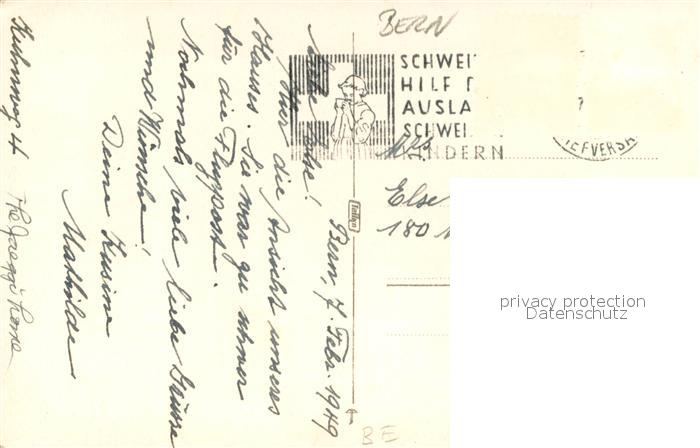 BERN
SCHWEI
HILF D
AUSLA
SCHWEI
KINDERN
IEFVERSA
Mrs
Else
180
Bern, 7. Febr. 1949
Liebe Else!
Nur die Ansicht unseres
Hauses. Sie war zu schwer
für die Flugpost.
Nochmals viele liebe Grüsse
und Wünsche!
Deine Kusine
Mathilde
Kuhnweg 4
The Jaeggi home
BE
privacy protection
Datenschutz